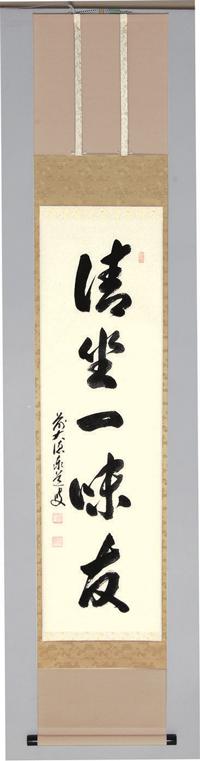 清坐一味友
前大徳